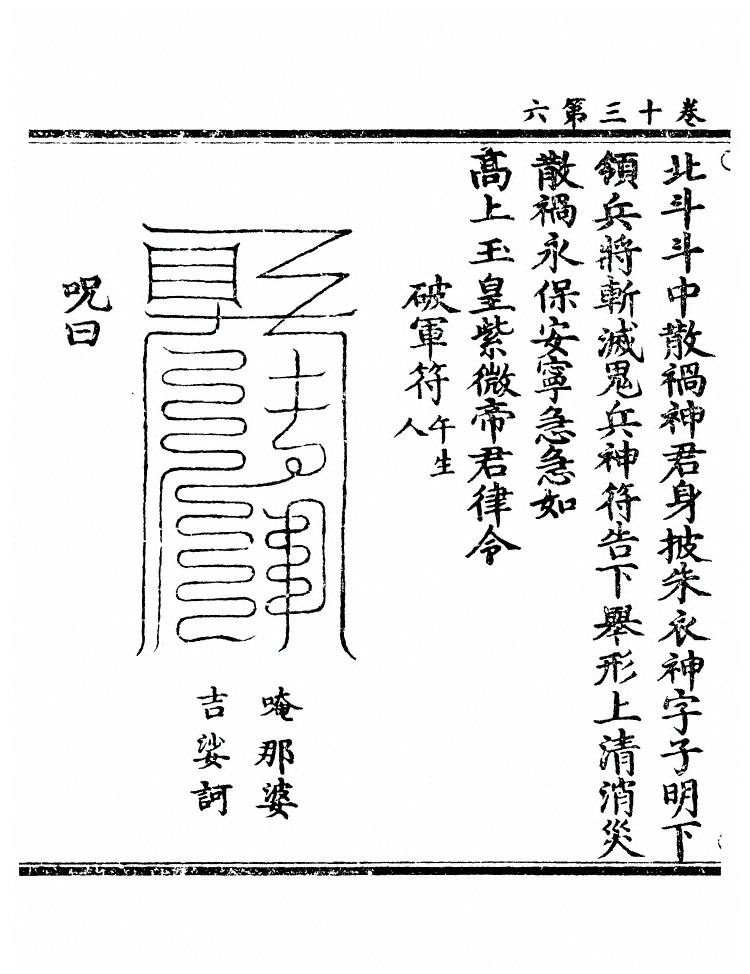 卷十三第六
北斗斗中散禍神君身披朱衣神字子明下
領兵將斬滅鬼兵神符告下舉形上清消災
散禍永保安寧急急如
高上玉皇紫微帝君律令
破軍符午生人
唵那婆
吉娑訶
呪曰